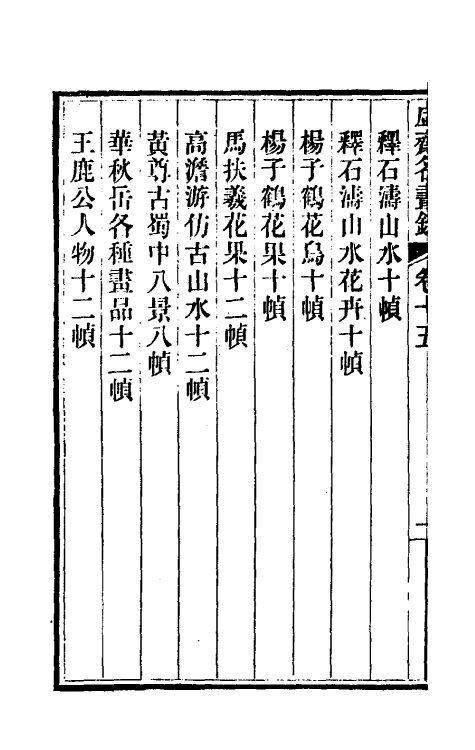 虛齋名畫錄 卷十五
釋石濤山水十幀
釋石濤山水花卉十幀
楊子鶴花鳥十幀
楊子鶴花果十幀
馬扶羲花果十二幀
高澹游仿古山水十二幀
黃尊古蜀中八景八幀
華秋岳各種畫品十二幀
王鹿公人物十二幀